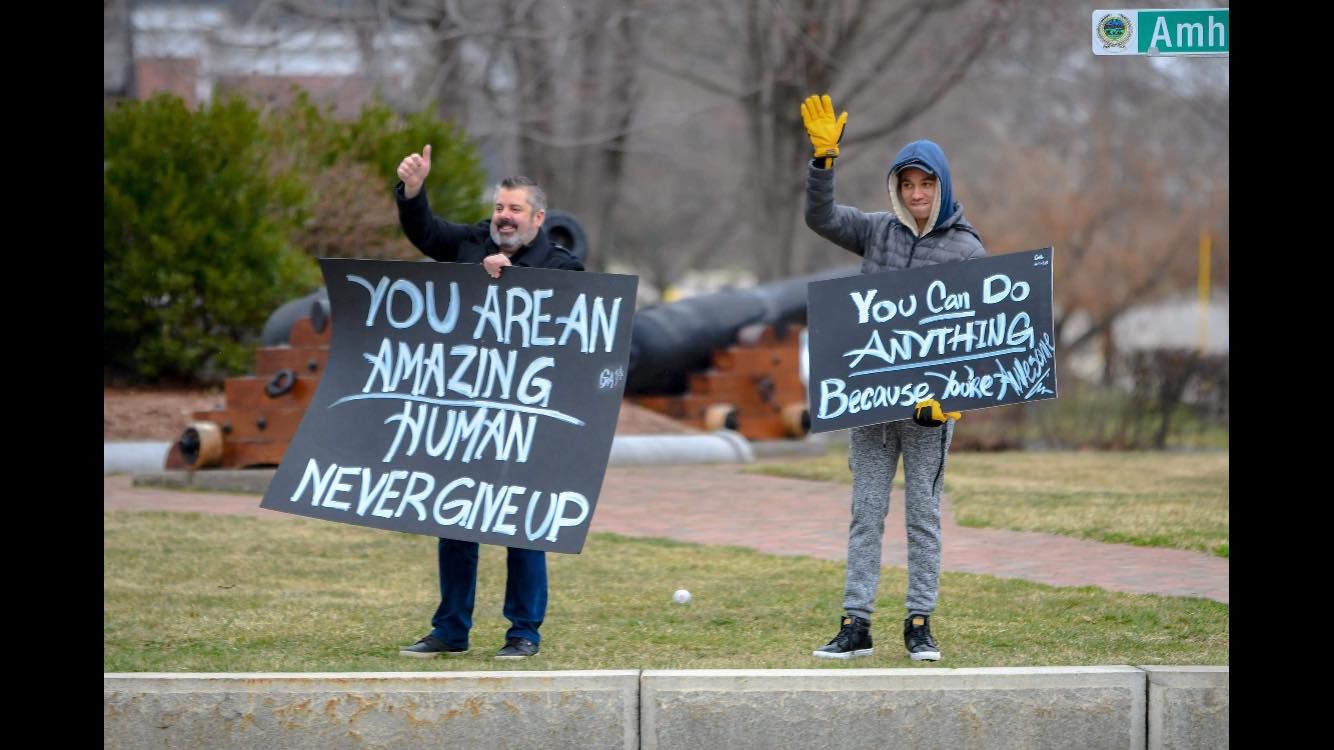 Amh
YOU ARE AN
AMAZING
HUMAN
NEVER GIVE UP
You Can Do
ANYTHING
Because You're Awesome